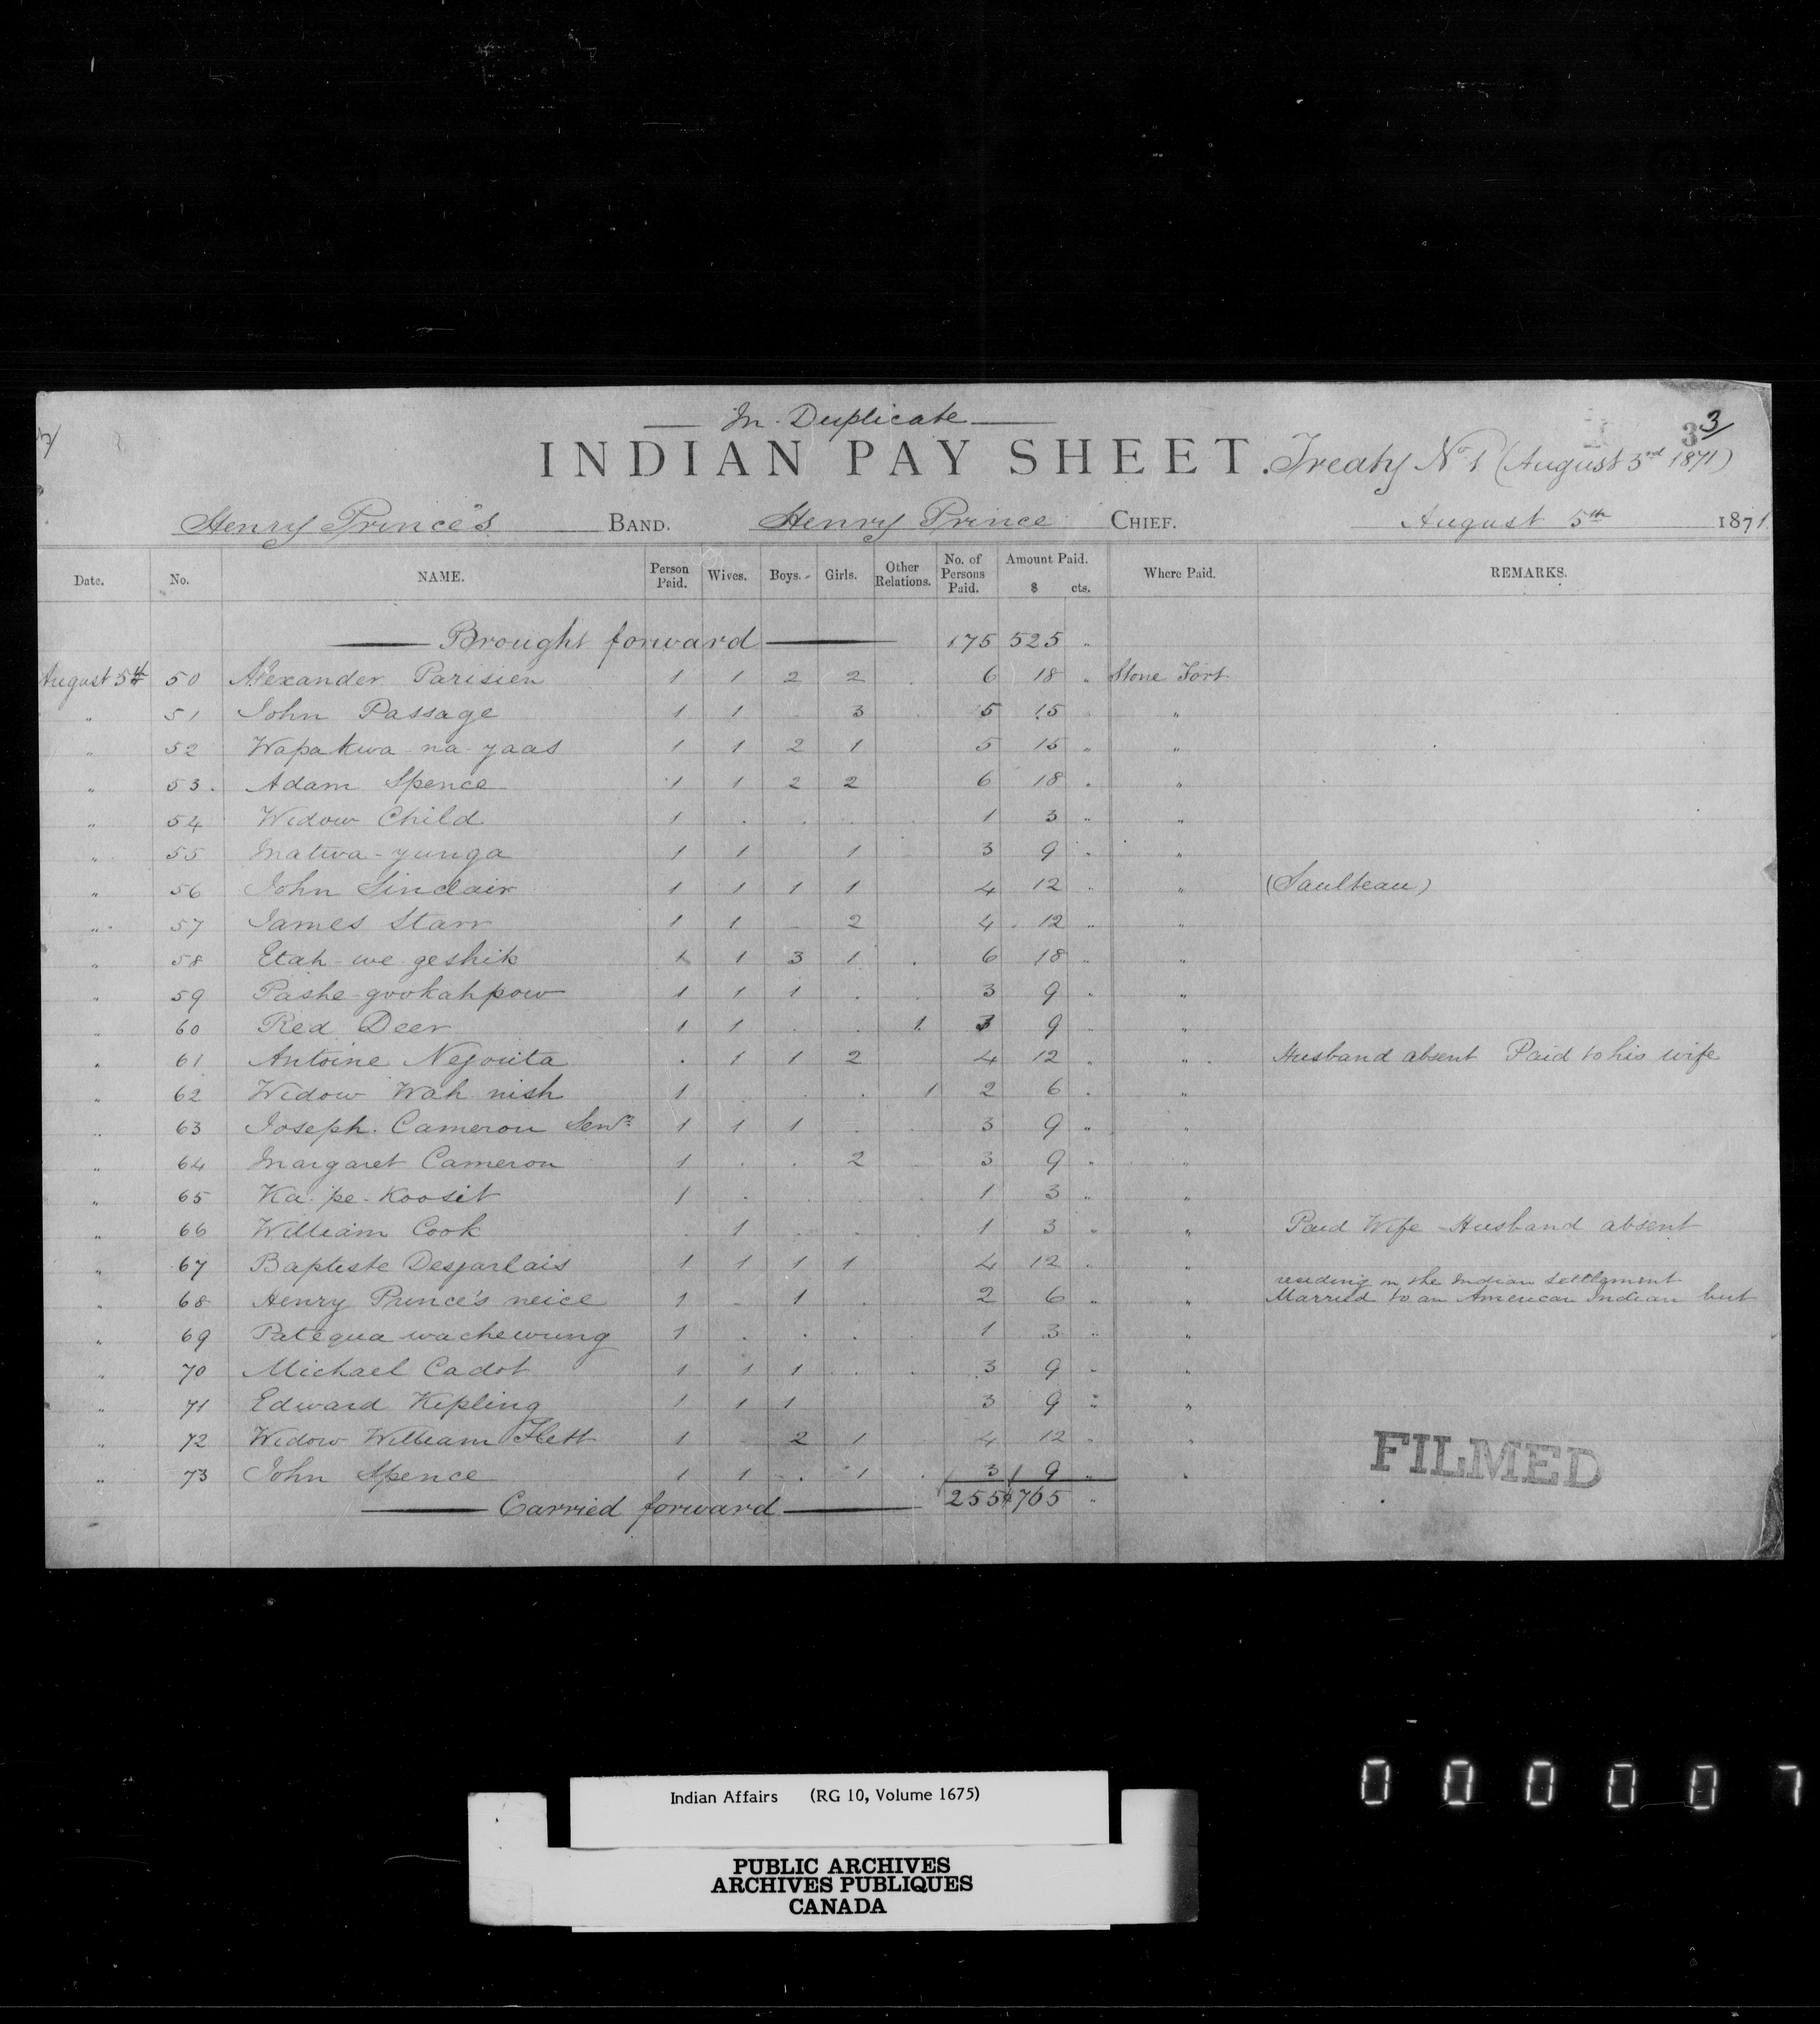 In Duplicate
3 3/
INDIAN PAY SHEET. Treaty No 1 (August 3rd 1871)
Henry Prince's BAND. Henry Prince CHIEF. August 5th 1871
Date. No. NAME. Person Paid. Wives. Boys. Girls. Other Relations. No. of Persons Paid. Amount Paid. $ cts. Where Paid. REMARKS.
Brought forward 175 525 "
August 5th 50 Alexander Parisien 1 1 2 2 . 6 18 " Stone Fort
" 51 John Passage 1 1 . 3 5 15 "
" 52 Wapakwa-na-yaas 1 1 2 1 5 15 " "
" 53. Adam Spence 1 1 2 2 6 18 " "
" 54 Widow Child 1 . . . . 1 3 " "
" 55 Matwa-yunga 1 1 1 3 9 " "
" 56 John Sinclair 1 1 1 1 4 12 " " (Saulteau)
" 57 James Starr 1 1 . 2 4 12 " "
" 58 Etah-we-geshik 1 1 3 1 . 6 18 " "
" 59 Pashe-gookahpow 1 1 1 . . 3 9 " "
" 60 Red Deer 1 1 . . 1 3 9 " "
" 61 Antoine . 1 1 2 4 12 " " Husband absent Paid to his wife
" 62 Widow Wah-nish 1 . . . 1 2 6 " "
" 63 Joseph Cameron Senr 1 1 1 . . 3 9 " "
" 64 Margaret Cameron 1 . . 2 3 9 " "
" 65 Ka-pe-Koosit 1 . . . . 1 3 " "
" 66 William Cook . 1 . . . 1 3 " " Paid Wife - Husband absent
" 67 Baptiste Desjarlais 1 1 1 1 4 12 " "
residing on the Indian Settlement
" 68 Henry Prince's neice 1 . 1 . 2 6 " " Married to an American Indian but
" 69 Pategua wachewung 1 . . . . 1 3 " "
" 70 Michael Cadot 1 1 1 . . 3 9 " "
" 71 Edward Kipling 1 1 1 3 9 " "
" 72 Widow William Flett 1 . 2 1 . 4 12 " "
" 73 John Spence 1 1 . 1 . 3 9 " "
Carried forward 255 $765 "
FILMED
Indian Affairs (RG 10, Volume 1675)
PUBLIC ARCHIVES
ARCHIVES PUBLIQUES
CANADA
0 0 0 0 0 7